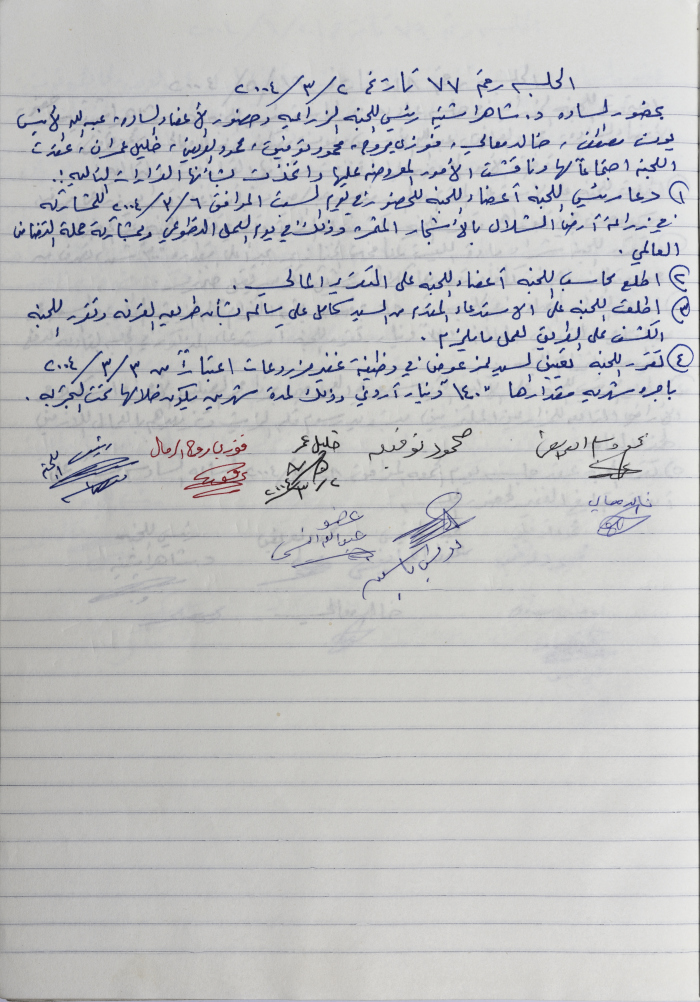 الجلسة رقم ٧٧ تاريخ ٢/٣/٢٠٠٤
بحضور السادة د. شاهر اشتية رئيس اللجنة الزراعية وحضور الأعضاء السادة، عبد الله الأنيس
خالد معالي، فوزي محمود توفيق، محمود خليل عمران، عقدت
اللجنة اجتماعاً لها وناقشت الأمور المعروضة عليها واتخذت بشأنها القرارات التالية:
① دعا رئيس اللجنة أعضاء اللجنة للحضور في يوم السبت الموافق ٦/٣/٢٠٠٤ للمشاركة
في زراعة أرض الشلال بالأشجار المثمرة وذلك في يوم العمل التطوعي وبمشاركة حملة التضامن
العالمي.
② اطلع محاسب اللجنة أعضاء اللجنة على التقرير المالي.
③ اطلعت اللجنة على الاستدعاء المقدم من السيد كامل علي سالم بشأن طريق القرنة وتقرر اللجنة
الكشف على الطريق لعمل ما يلزم.
④ تقرر اللجنة تعيين السيد رمز عوض في وظيفة غفير مزروعات اعتباراً من ٣/٣/٢٠٠٤
بأجرة شهرية مقدارها ١٤٠ دينار أردني وذلك لمدة شهرين يكون خلالها تحت التجربة.
رئيس اللجنة
فوزي
خليل عمر
محمود توفيق
٢/٣/٢٠٠٤
خالد معالي
عضو
عبد الله أنيس